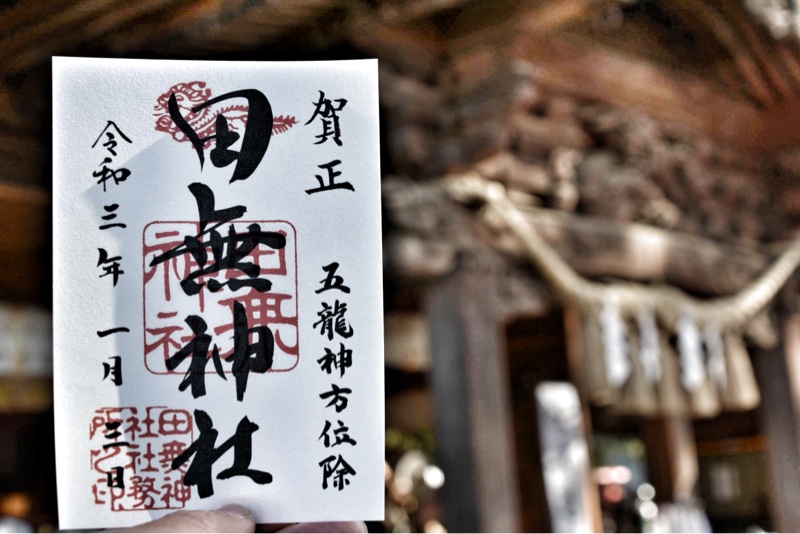 賀正
五龍神方位除
田無神社
令和三年 一月 三日
田無
神社
田無神
社社務
所之印